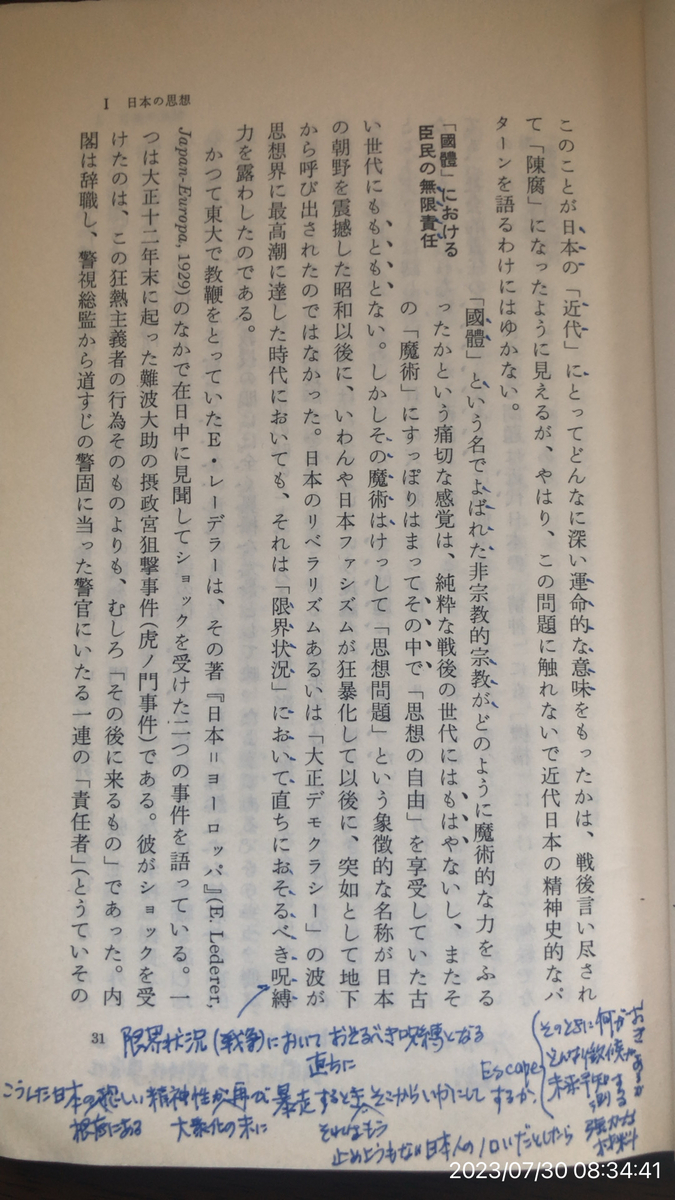 I 日本の思想
このことが日本の「近代」にとってどんなに深い運命的な意味をもったかは、戦後言い尽され
て「陳腐」になったように見えるが、やはり、この問題に触れないで近代日本の精神史的なパ
ターンを語るわけにはゆかない。
「國體」における
臣民の無限責任
「國體」という名でよばれた非宗教的宗教がどのように魔術的な力をふる
ったかという痛切な感覚は、純粋な戦後の世代にはもはやないし、またそ
の「魔術」にすっぽりはまってその中で「思想の自由」を享受していた古
い世代にももともとない。しかしその魔術はけっして「思想問題」という象徴的な名称が日本
の朝野を震撼した昭和以後に、いわんや日本ファシズムが狂暴化して以後に、突如として地下
から呼び出されたのではなかった。日本のリベラリズムあるいは「大正デモクラシー」の波が
思想界に最高潮に達した時代においても、それは「限界状況」において直ちにおそるべき呪縛
力を露わしたのである。
かつて東大で教鞭をとっていたE・レーデラーは、その著『日本＝ヨーロッパ』(E. Lederer,
Japan-Europa, 1929)のなかで在日中に見聞してショックを受けた二つの事件を語っている。一
つは大正十二年末に起った難波大助の摂政宮狙撃事件(虎ノ門事件)である。彼がショックを受
けたのは、この狂熱主義者の行為そのものよりも、むしろ「その後に来るもの」であった。内
閣は辞職し、警視総監から道すじの警固に当った警官にいたる一連の「責任者」(とうていその
31
限界状況(戦争)において おそるべき呪縛となる
直ちに
こうした日本の悲しい精神性が再び暴走するとき そこからいかにして Escape するか。
根底にある 大衆化の末に それはもう
止めようもない日本人の ノロいだとしたら
そのときに何がおきあるか
どんな徴候が
未来予知
する
材料
2023/07/30 08:34:41